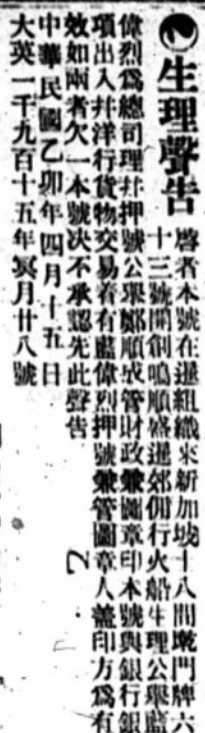 生理聲告
啓者本號在暹組織來新加坡十八間墩門牌六
十三號開創鳴順盛暹郊佣行火船生理公舉藍
偉烈爲總司理并押號公舉鄭順成管財政兼圖章印本號與銀行銀
項出入并洋行貨物交易若有藍偉烈押號兼管圖章人蓋印方爲有
效如兩者欠一本號决不承認先此聲告
中華民國乙卯年四月十五日
大英一千九百十五年冥月廿八號